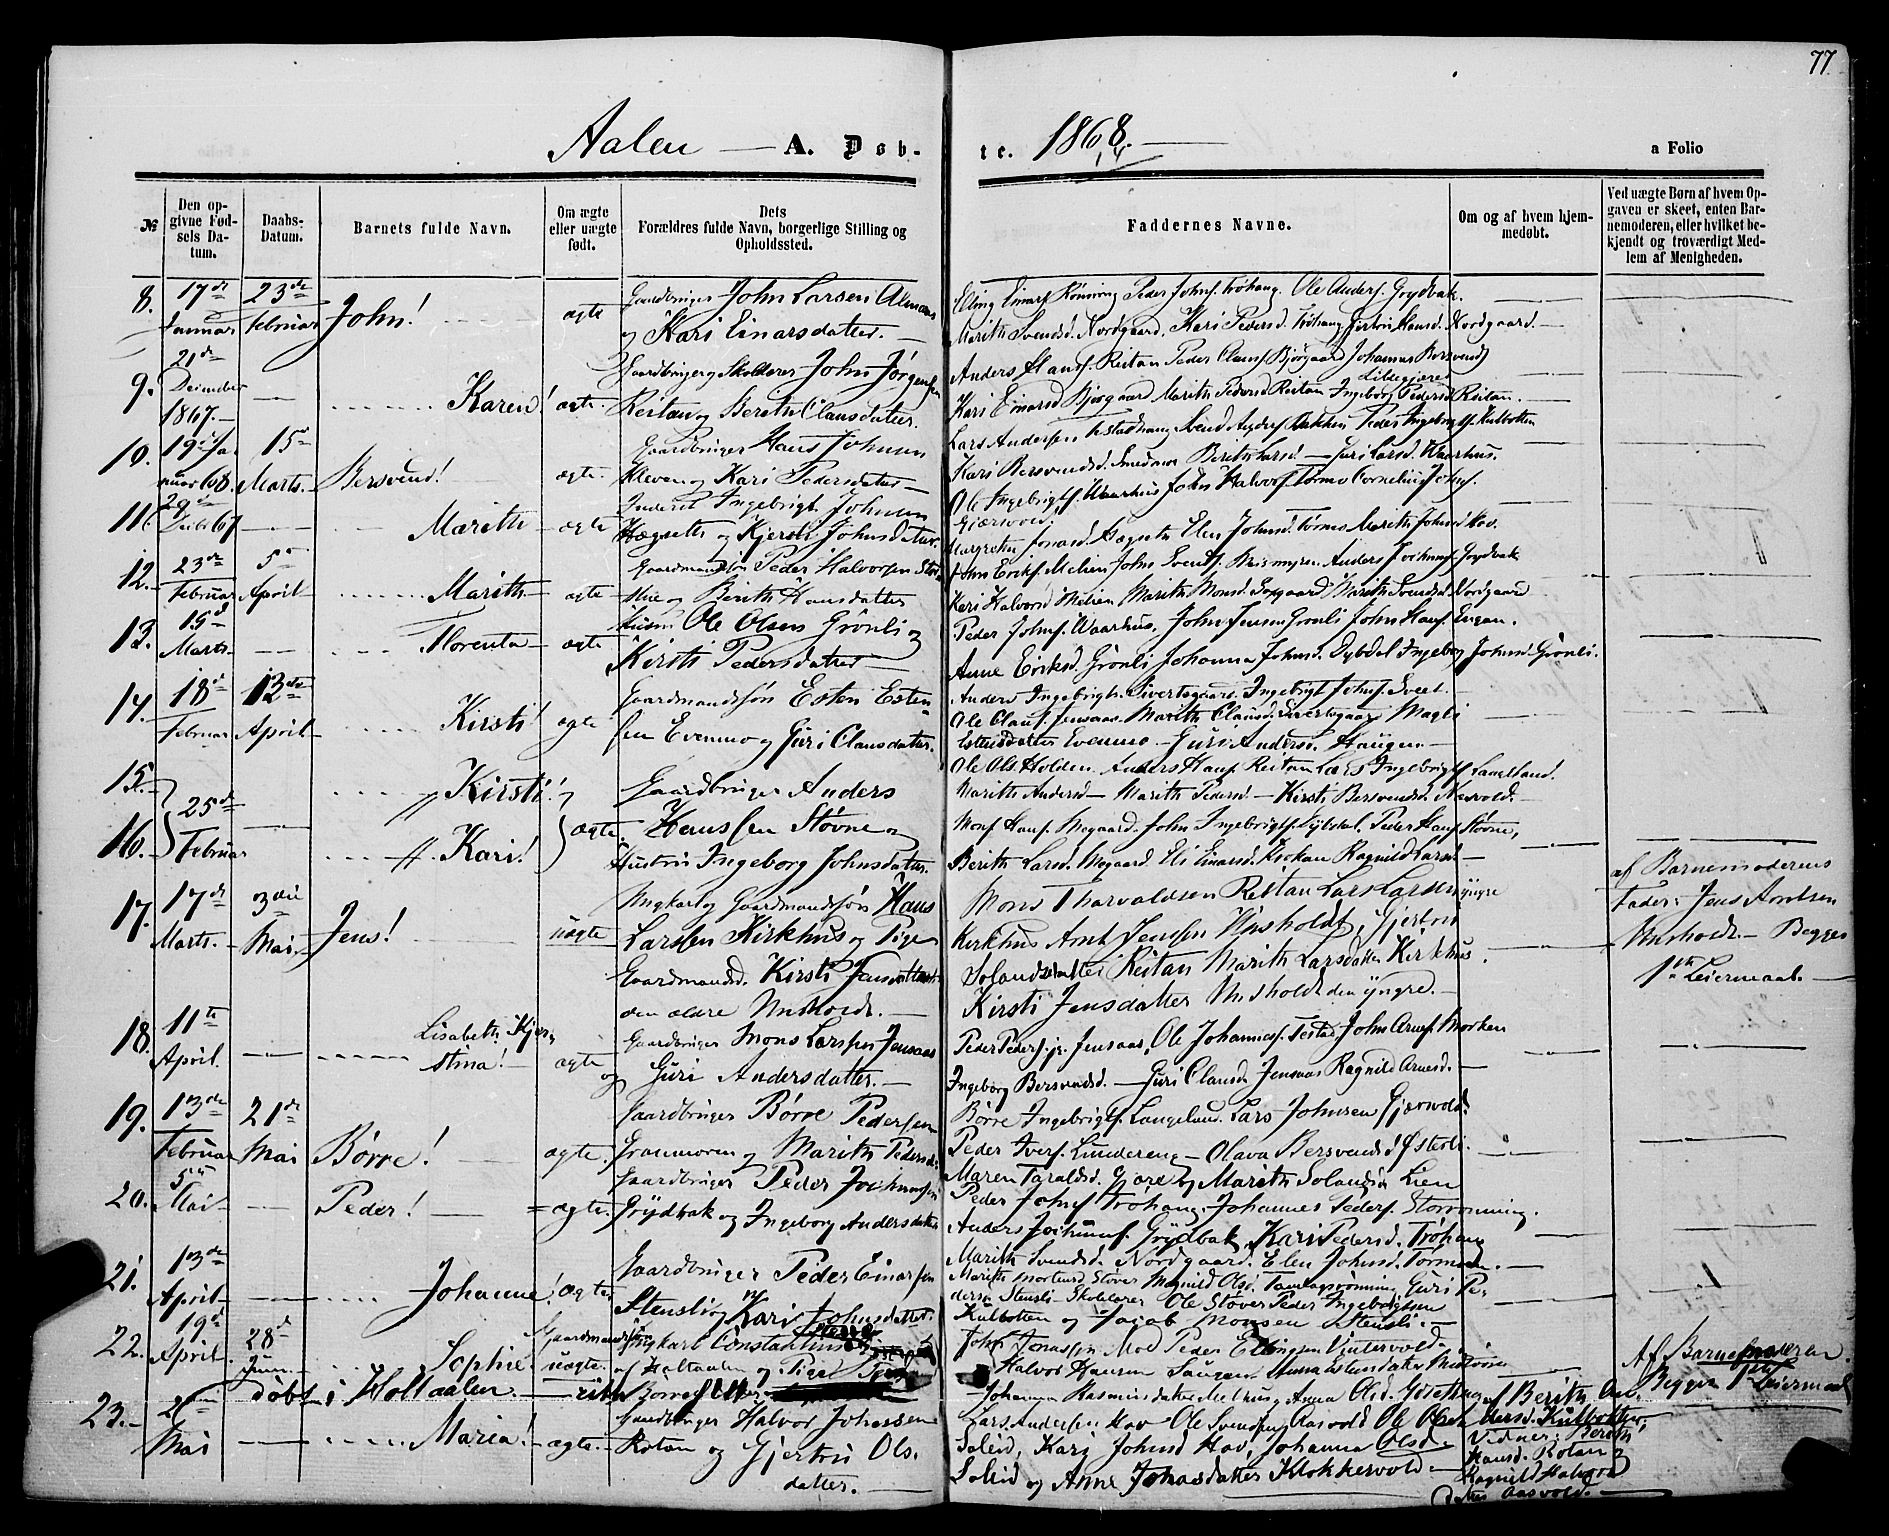 77
Aalen — A. Døb-
te. 1868. —
a Folio
№
Den op-
givne Fød-
sels Da-
tum.
Daabs-
Datum.
Barnets fulde Navn.
Om ægte
eller uægte
født.
Dets
Forældres fulde Navn, borgerlige Stilling og
Opholdssted.
Faddernes Navne.
Om og af hvem hjem-
medøbt.
Ved uægte Børn af hvem Op-
gaven er skeet, enten Bar-
nemoderen, eller hvilket be-
kjendt og troværdigt Med-
lem af Menigheden.
8. 17de Januar 23de Februar John! ægte
Gaardbruger John Larsen
og Kari Einarsdatter. —
Peder Johns. Trøhaug. Ole Anders. Grydbak.
Marith Svendsd. Nordgaard. Kari Pedersd. Trøhaug Hansd. Nordgaard. —
9. 21de December 1867. — Karen! ægte
Gaardbruger og Skolelærer John Jørgensen
Reitan og Berith Clausdatter.
Anders Hans. Reitan Peder Claus. Bjørgaard Johannes Bersvends.
Lillegjære
Kari Einarsd. Bjørgaard Marith Pedersd. Reitan Ingeborg Pedersd. Reitan.
10. 19de Januar 68. 15de Marts. — Bersvend! ægte
Gaardbruger Hans Johnsen
Kleven og Kari Pedersdatter —
Lars Andersen Svend Anders. Peder Ingebrigts. Kulbotten
Kari Bersvendsd. Berith Larsd. — Guri Larsd. Waarhus.
11. 29de Decbr 67 Marith — ægte
Inderst Ingebrigt Johnsen
Hægseth og Kjersti Johnsdatter.
Ole Ingebrigts. Waarhus John Halvors. Tørmo Cornelius Johns.
Gjærsvold.
Margrethe Jonasd. Hægseth Elen Johnsd. Tørmo Marith Johnsd. Hov.
12. — 23de Februar 5te April Marith — ægte
Gaardmandssøn Peder Halvorsen
og Berith Hansdatter
John Eriks. Melien John Svends. Anders Jochums. Grydbak
Kari Halvorsd. Melien Marith Monsd. Marith Svendsd. Nordgaard
13. 15de Marts — Florenta — ægte
Ole Olsen Grønli og
Kirsti Pedersdatter —
Peder Johns. Waarhus. John Jensen Grønli John Hans. Engan.
Anne Eriksd. Grønli Johanna Johnsd. Dybdal Ingeborg Johnsd. Grønli.
14. 18de Februar 13de April — Kirsti! ægte
Gaardmandssøn Esten Esten-
sen Evenmo og Guri Clausdatter.
Anders Ingebrigts. Sivertsgaard. Ingebrigt Johns. —
Ole Claus. Jensaas. Marith Clausd. Sivertsgaard Magli
Estensdatter Evenmo — Guri Andersd. Haugen —
15. — Kirsti!
Gaardbruger Anders
Ole Ols. Holden. Anders Hans. Reitan Lars Ingebrigts. Langeland.
Marith Andersd — Marith Pedersd — Kirsti Bersvendsd. —
16. 25de Februar Kari! ægte
Hanssen Støvne og
Hustru Ingeborg Johnsdatter.
Mons Hans. Mogaard. John Ingebrigts. Dybdal. Peder Hans. Støvne,
Berith Larsd. Mogaard. Eli Einarsd. Ragnild Larsd. —
17. 17de Marts. 3die Mai. — Jens! uægte
Ungkarl og Gaardmandssøn Hans
Larssen Kirkhus og Pige
Gaardmandsd. Kirsti Jensdatter
den ældre Unsholdt. —
Mons Tharvaldsen Reitan Lars Larsen yngre
Kirkhus Arnt Jensen Unsholdt, Gjertru
Solansdatter Reitan Marith Larsdatter Kirkhus.
Kirsti Jensdatter Unsholdt den yngre. —
af Barnemoderens
Fader: Jens Arntsen
Unsholdt. — Begges
1ste Leiermaal. —
18. 11te April. — Lisabeth Kjer-
stina! — ægte
Gaardbruger Mons Larssen Jensaas
og Guri Andersdatter. —
Peder Peders. jr. Jensaas, Ole Johannes. John Arnes. Morken
Ingeborg Bersvendsd. — Guri Clausd. Jensaas Ragnild Arnesd. —
19. 13de Februar 21de Mai Børre! ægte.
Gaardbruger Børre Pedersen
Granmoren og Marith Pedersd.
Børre Ingebrigts. Langeland. Lars Johnsen Gjærsvold.
Peder Ivers. Lundereng — Olava Bersvendsd. Østerli.
Maren Taraldsd. Gjære og Marith Solansd. Lien
20. 5te Mai — Peder! — ægte.
Gaardbruger Peder Jochumsen
Grydbak og Ingeborg Andersdatter
Peder Johns. Trøhaug. Johannes Peders. Storrønning.
Anders Jochums. Grydbak, Kari Pedersd. Trøhaug
Marith Svendsd. Nordgaard. Elen Johnsd. Tørmoen. —
21. 13de April — Johanne! ægte
Gaardbruger Peder Einarsen
Stensli og Kari Johnsdatter.
Marith Mortensd. Støver Magnild Olsd. Tamlagsrønning Guri Pe-
dersd. Stensli — Skolelærer Ole Støver Peder Ingebrigtsen
Kulbotten og Jacob Monsen Stensli. —
22. 19de April. 28de Juni Sophie! uægte.
Gaardmandssøn
Ungkarl Constantinus
af Holtaalen og Pige
døbt i Holtaalen —
John Jonassen Mod Peder Ellingsen Vintervold.
Halvor Hansen
Johanna Rasmusdatter Anna Olsd.
Af Barnemoderen.
Begges 1ste Leiermaal
23. — Mai — Maria! — ægte. —
Gaardbruger Halvor Johnssen
Rotan og Gjertru Ols-
datter. —
Lars Andersen Hov Ole Svendsen Aasvold Ole Olsen
Soleid, Kari Johnsd. Hov, Johanna Olsd.
Soleid og Anne Jonasdatter Klokkervold. —
af Berith
Kulbotten.
Vidner: Berith
Hansd. Rotan og
Ragnild Halvors-
datter Aasvold. —